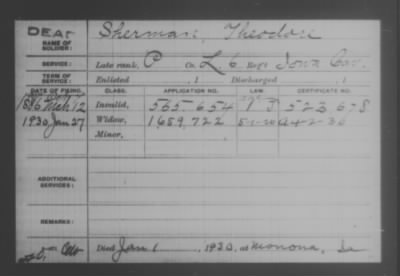 DEAF
NAME OF SOLDIER: Sherman, Theodore
SERVICE: Late rank, P Co. L, 6 Reg't Iowa Cav.
TERM OF SERVICE: Enlisted , 1 Discharged , 1
DATE OF FILING. CLASS. APPLICATION NO. LAW. CERTIFICATE NO.
1886 Mch 12 Invalid, 565.654 523.678
1930 Jan 27 Widow, 1659,722
Minor,
ADDITIONAL SERVICES:
REMARKS:
Died Jan 1 , 1930, at Monona, Ia